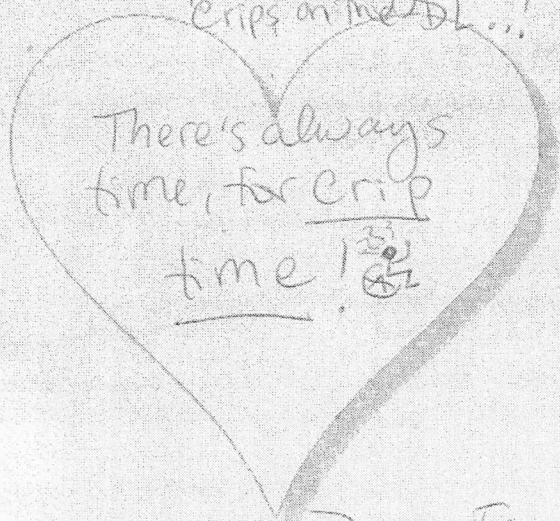 Crips on the DL...!
There's always
time, for crip
time!